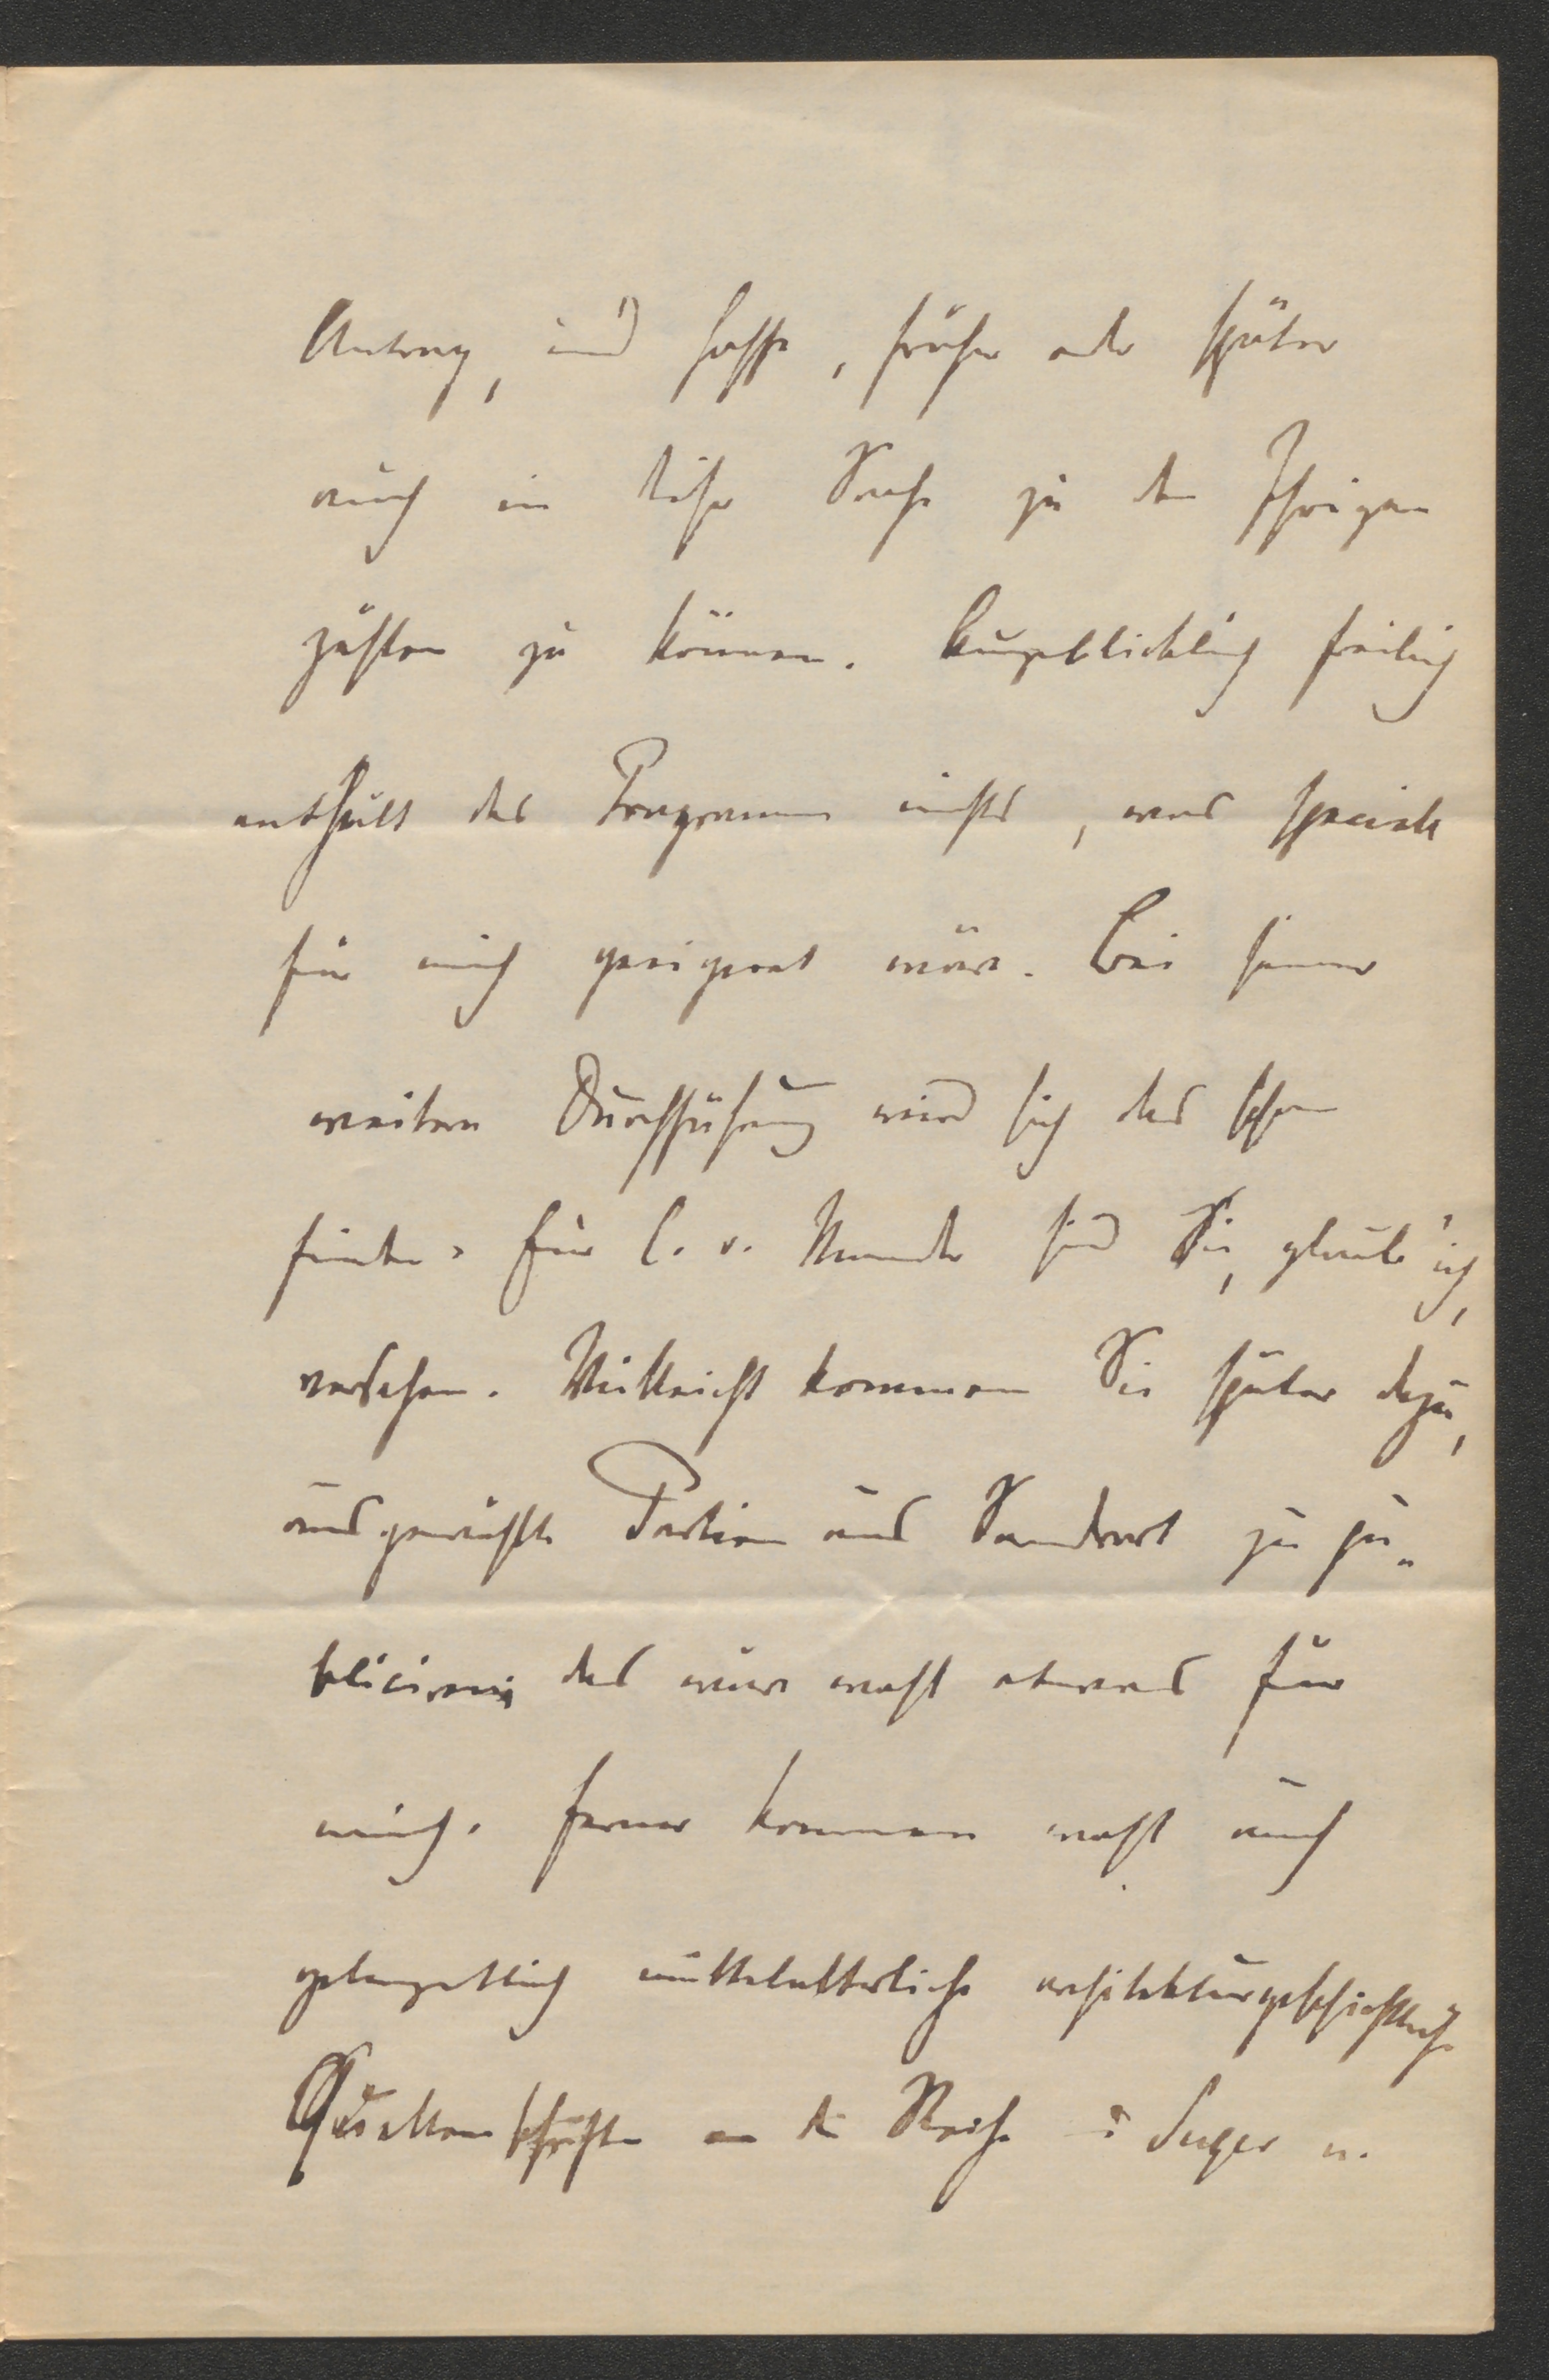 Antrag, und hoffe, früher oder später
auch in dieser Sache zu den Ihrigen
zählen zu können. Augenblicklich freilich
enthält das Programm nichts, was speciell
für mich geeignet wäre. Bei seiner
weitern Durchführung wird sich das schon
finden. Für C. v. Mander sind Sie, glaube ich,
versehen. Vielleicht kommen Sie später dazu,
ausgewählte Partien aus Sandrart zu pu-
bliciren; das wäre wohl etwas für
mich. Ferner kommen wohl auch
gelegentlich mittelalterliche architekturgeschichtliche
Quellenschriften an die Reihe: Suger u.